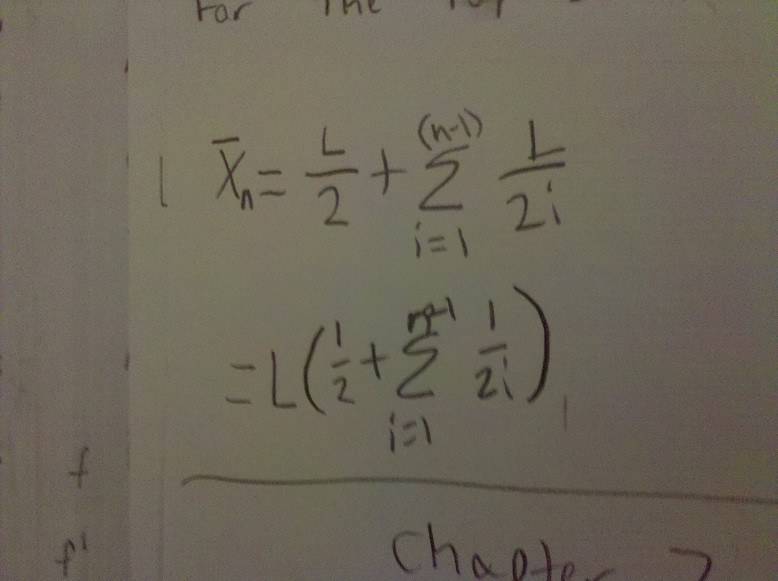 For The
X̄ₙ = L/2 + Σ_{i=1}^{(n-1)} L/2i
= L(1/2 + Σ_{i=1}^{n-1} 1/2i)
f
f'
Chapter